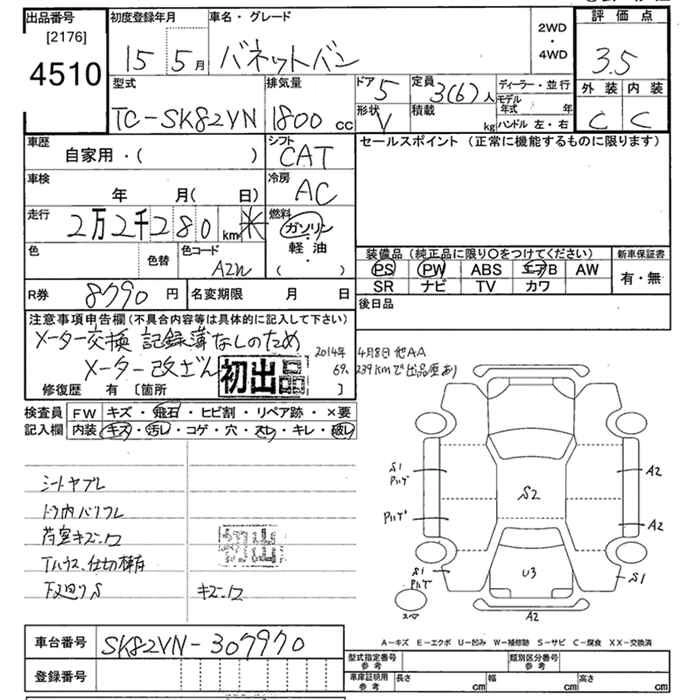 出品番号
[2176]
4510
初度登録年月
15 5月
車名・グレード
バネットバン
2WD
・
4WD
評価点
3.5
外装 内装
C C
型式
TC-SK82VN
排気量
1800 cc
ドア 5
形状 V
定員 3(6)人
積載 kg
ディーラー・並行
モデル年式 年
ハンドル 左・右
車歴
自家用・( )
シフト
CAT
セールスポイント (正常に機能するものに限ります)
車検
年 月( 日)
冷房
AC
走行
2万2千280km 米
燃料
ガソリン
軽油
( ・ )
色
色替
色コード
A2W
装備品 (純正品に限り○をつけてください)
PS PW ABS エアB AW
SR ナビ TV カワ
新車保証書
有・無
R券 8790円
名変期限 月 日
後日品
注意事項申告欄(不具合内容等は具体的に記入して下さい)
メーター交換 記録簿なしのため
メーター改ざん
初出品
2014年 4月8日 他AA
69,239kmで出品歴あり
修復歴 有〔箇所 〕
検査員記入欄
FW キズ・飛石・ヒビ割・リペア跡・×要
内装 キズ・汚レ・コゲ・穴・スレ・キレ・破レ
シートヤブレ
ドア内バリフレ
荷室キズ凹
Tハウス、仕切棒有
下廻りS
キズ凹
初出
S1
S2
A2
A2
U3
S1
S1
A2
スペ
A－キズ E－エクボ U－凹み W－補修跡 S－サビ C－腐食 XX－交換済
車台番号
SK82VN-307970
登録番号
型式指定番号
参考
類別区分番号
参考
車庫証明用
参考
長さ cm
幅 cm
高さ cm